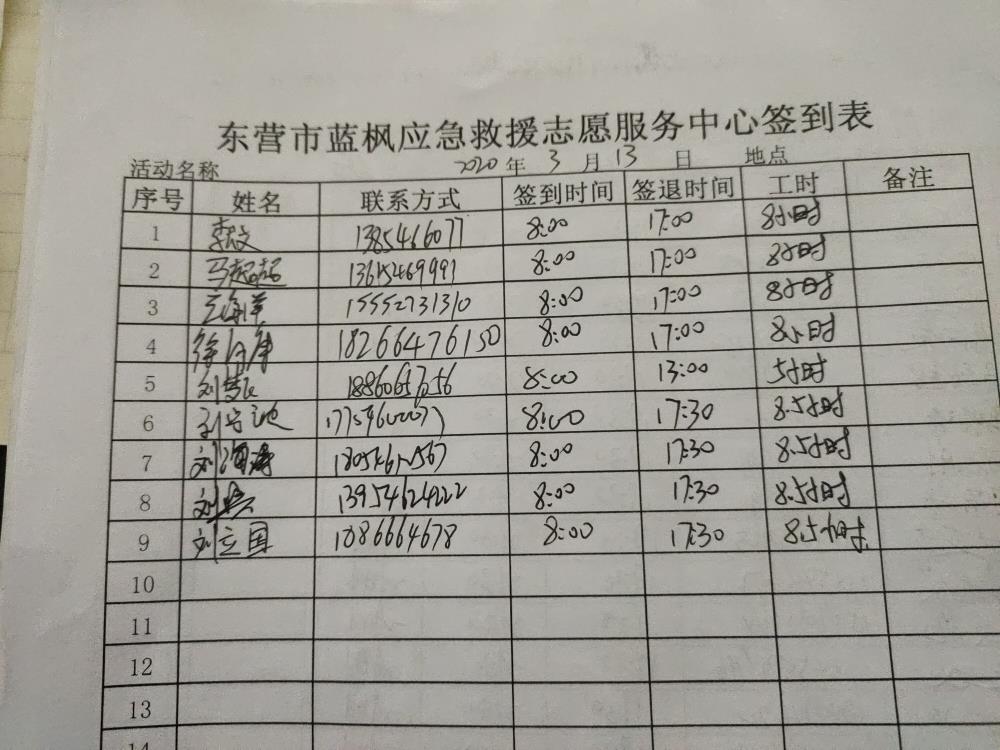 东营市蓝枫应急救援志愿服务中心签到表
活动名称 2020年 3月 13日 地点
序号 姓名 联系方式 签到时间 签退时间 工时 备注
1 8:00 17:00 8小时
2 马超超 13615469991 8:00 17:00 8小时
3 15552731310 8:00 17:00 8小时
4 18266476150 8:00 17:00 8小时
5 8:00 13:00 5小时
6 8:00 17:30 8.5小时
7 刘海涛 8:00 17:30 8.5小时
8 13954624222 8:00 17:30 8.5小时
9 刘立国 8:00 17:30 8.5小时
10
11
12
13
14